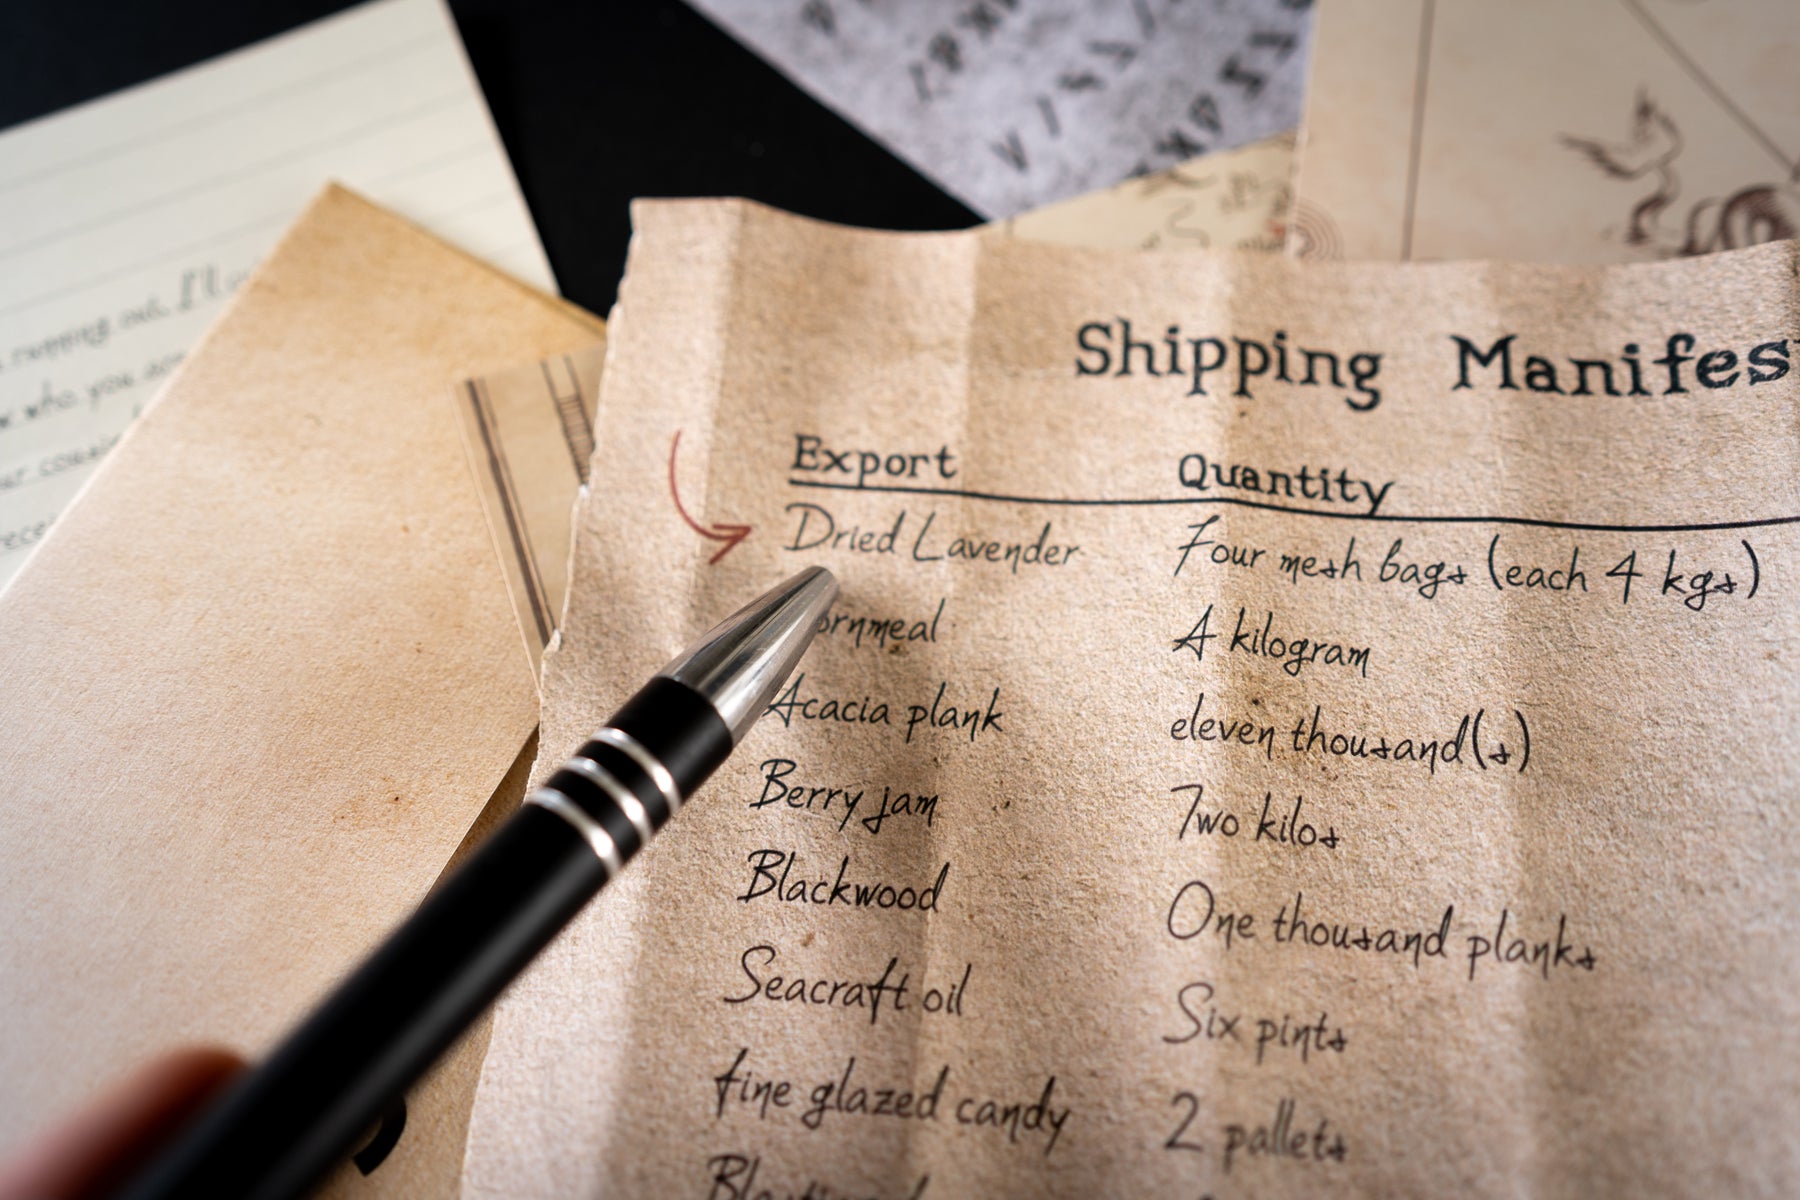 running out. I'll
who you are
Shipping Manifes
Export Quantity
Dried Lavender Four mesh bags (each 4 kgs)
ornmeal A kilogram
Acacia plank eleven thousand(s)
Berry jam Two kilos
Blackwood One thousand planks
Seacraft oil Six pints
fine glazed candy 2 pallets